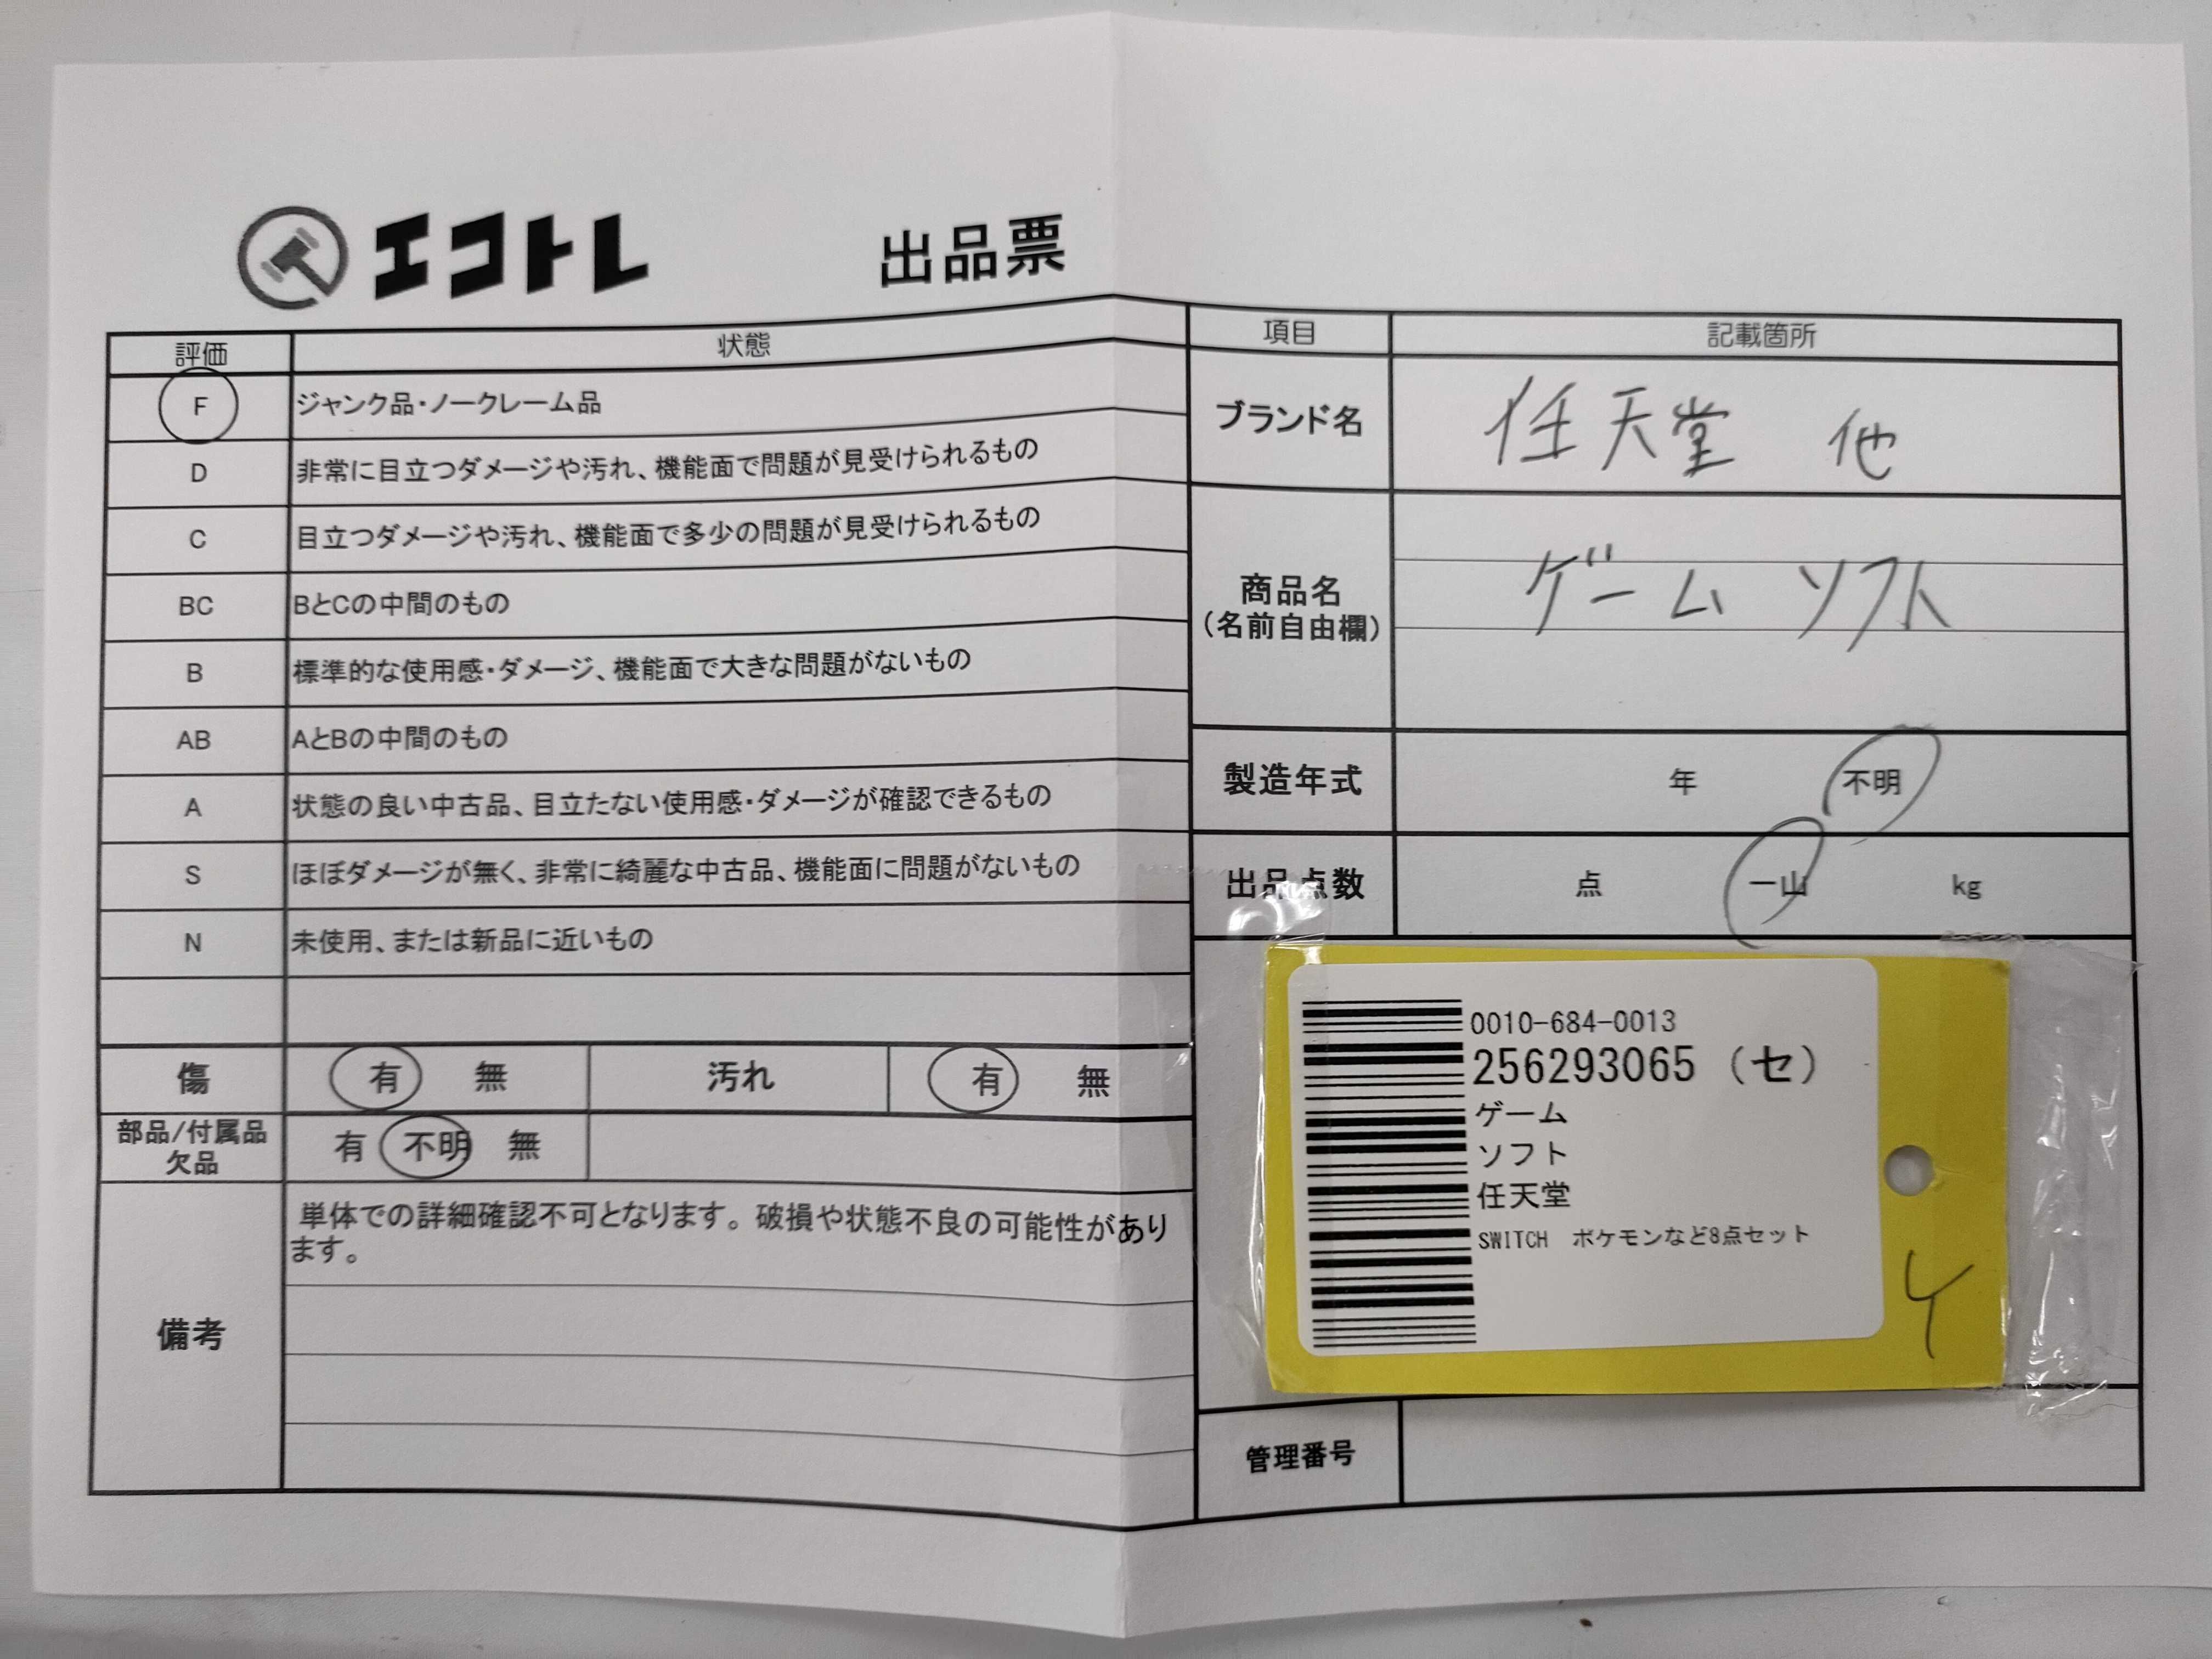 エコトレ 出品票
評価 状態
F ジャンク品・ノークレーム品
D 非常に目立つダメージや汚れ、機能面で問題が見受けられるもの
C 目立つダメージや汚れ、機能面で多少の問題が見受けられるもの
BC BとCの中間のもの
B 標準的な使用感・ダメージ、機能面で大きな問題がないもの
AB AとBの中間のもの
A 状態の良い中古品、目立たない使用感・ダメージが確認できるもの
S ほぼダメージが無く、非常に綺麗な中古品、機能面に問題がないもの
N 未使用、または新品に近いもの
傷 有 無 汚れ 有 無
部品/付属品
欠品
有 不明 無
備考
単体での詳細確認不可となります。破損や状態不良の可能性があり
ます。
項目 記載箇所
ブランド名 任天堂 他
商品名
(名前自由欄)
ゲームソフト
製造年式 年 不明
出品点数 点 一山 kg
0010-684-0013
256293065 (セ)
ゲーム
ソフト
任天堂
SWITCH ポケモンなど8点セット
管理番号